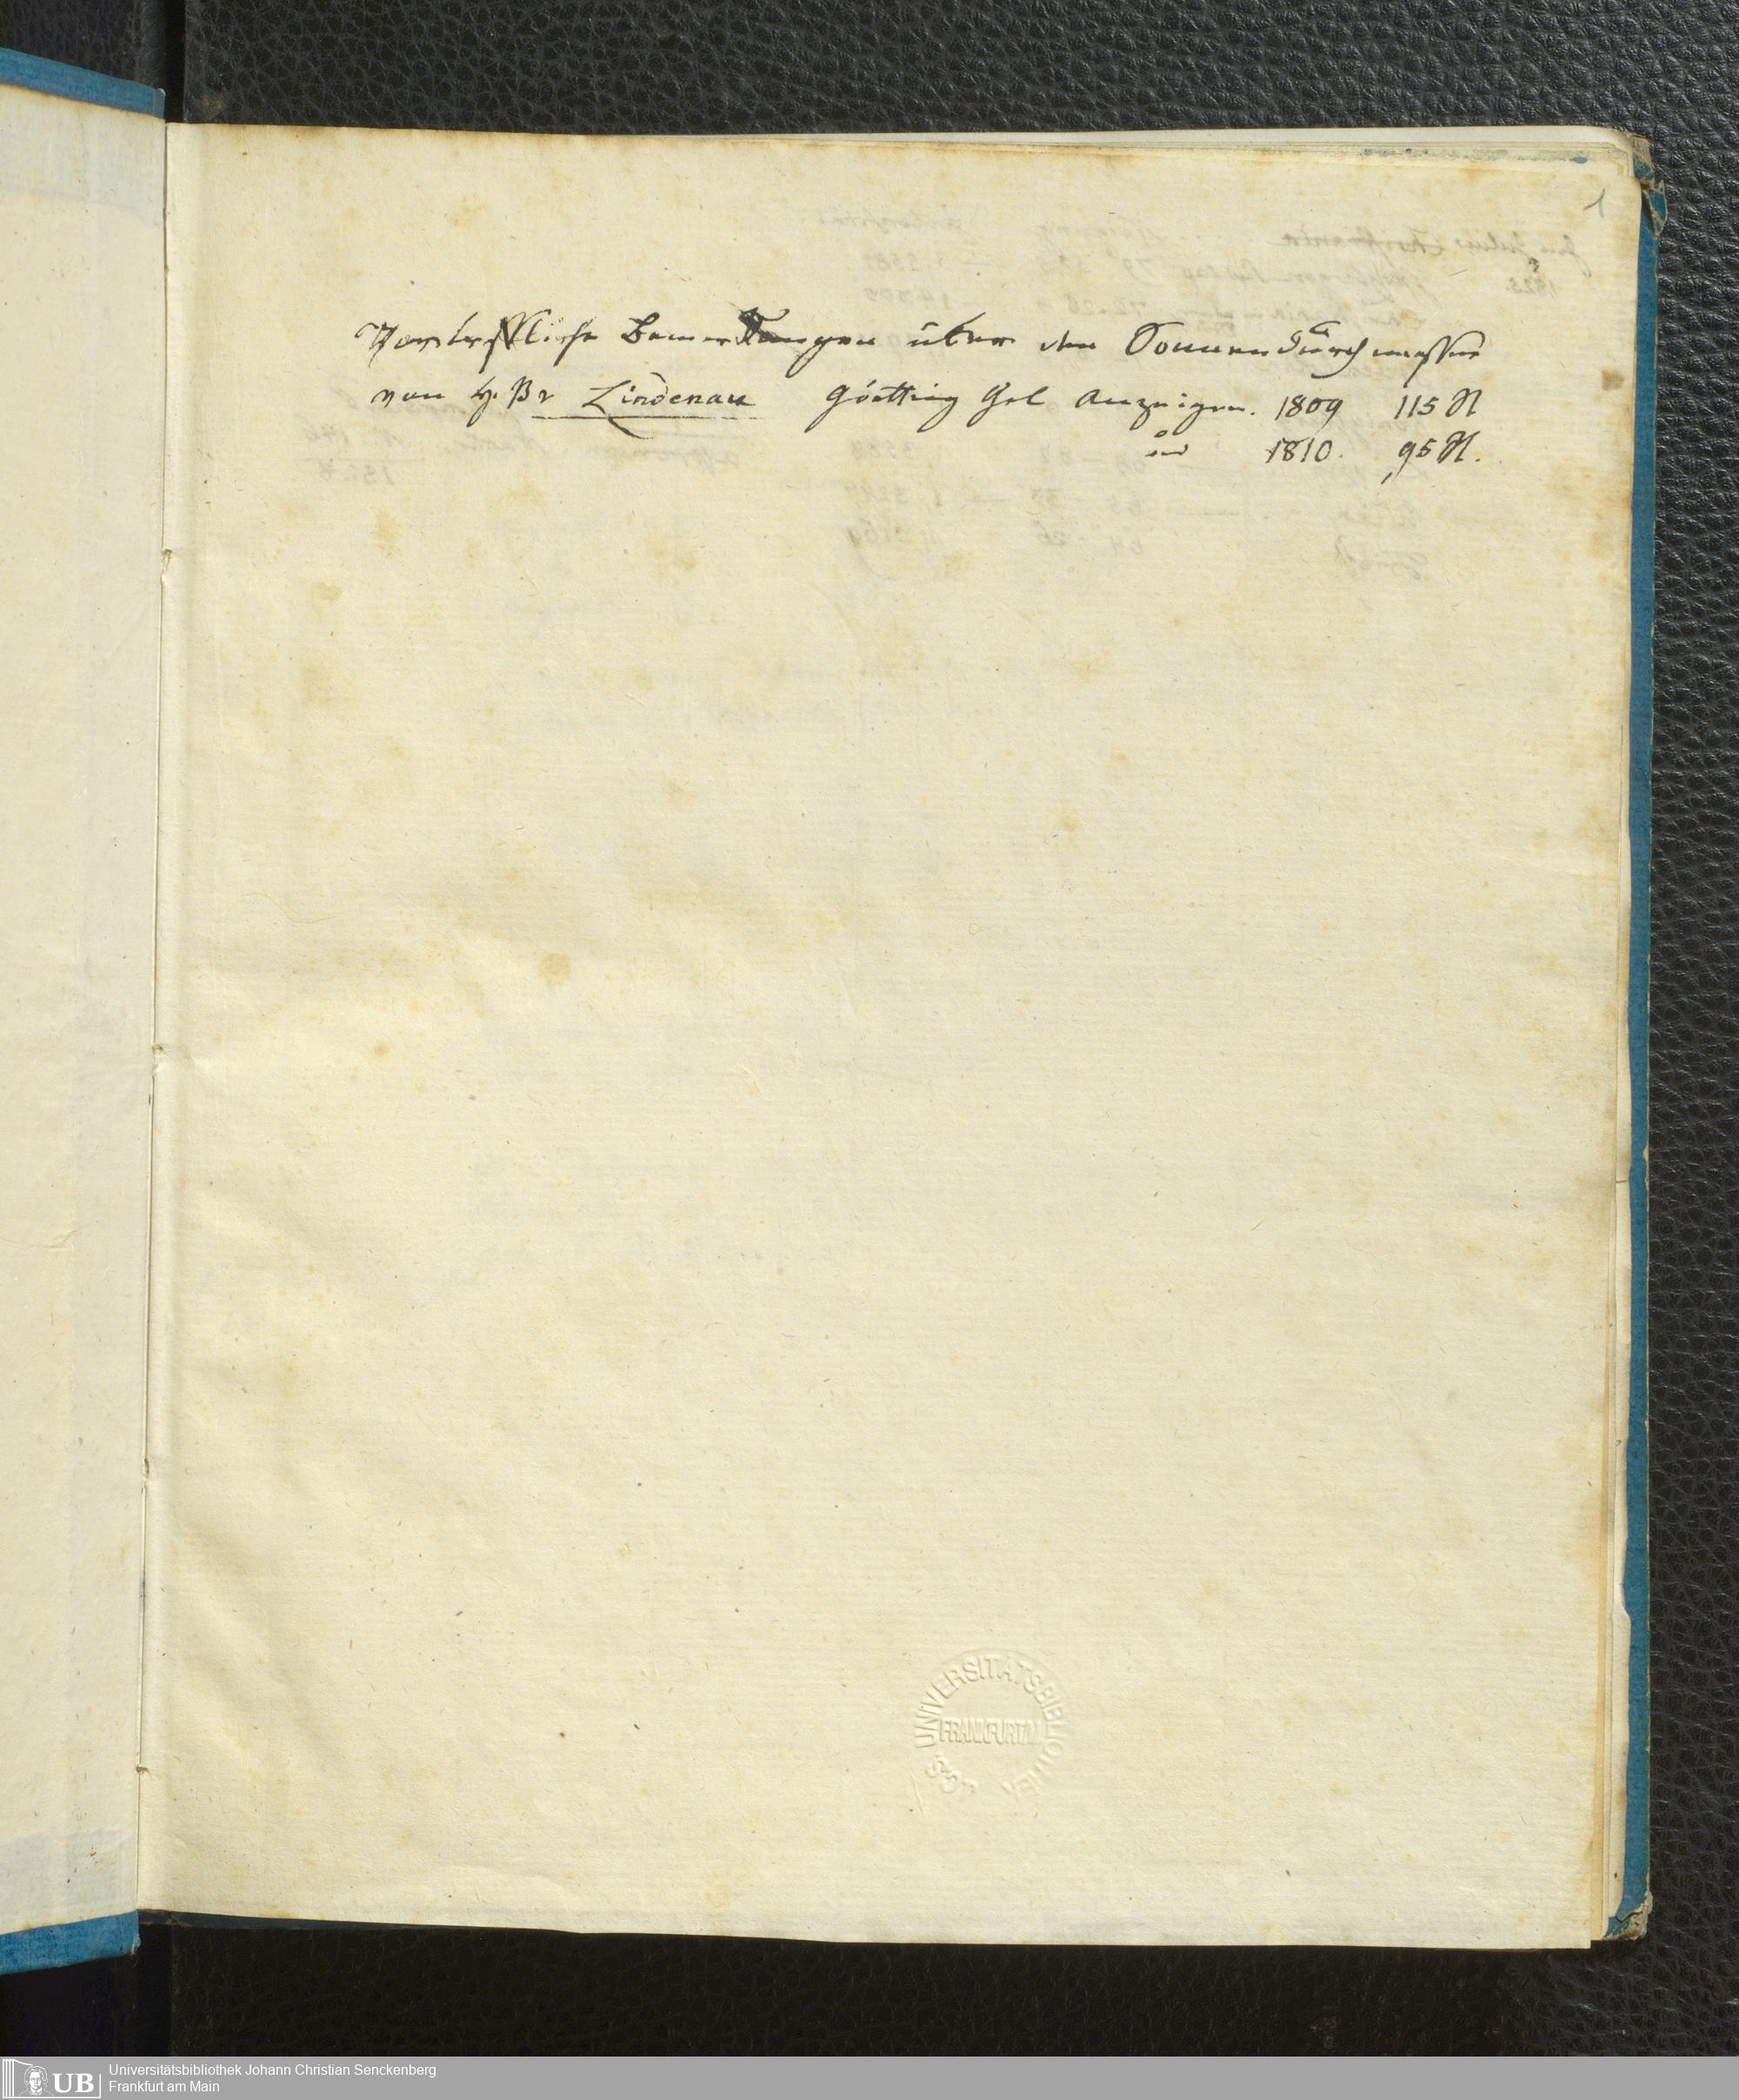 1
Vortrefliche Bemerkungen über den Sonnendurchmesser
von H. Br Lindenau Götting Gel Anzeigen. 1809 115 St
und 1810. 95 St.
UNIVERSITÄTSBIBLIOTHEK
FRANKFURT/M.
UB
Universitätsbibliothek Johann Christian Senckenberg
Frankfurt am Main